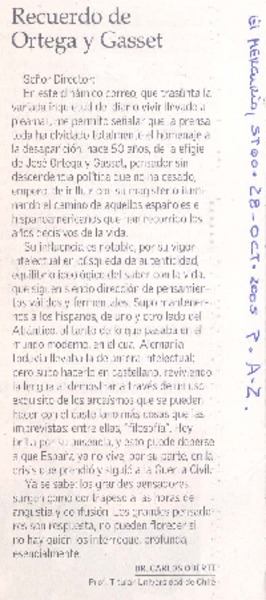 Recuerdo de
Ortega y Gasset
Señor Director:
En este dinámico correo, que trasunta la
variada inquietud del diario vivir llevado a
pleamar, me permito señalar que la prensa
toda ha olvidado totalmente el homenaje a
la desaparición, hace 50 años, de la efigie
de José Ortega y Gasset, pensador sin
descendencia política que no ha cesado,
empero, de influir con su magisterio ilumi-
nando el camino de aquellos españoles e
hispanoamericanos que han recorrido los
años decisivos de la vida.
Su influencia es notable, por su vigor
intelectual en búsqueda de autenticidad,
equilibrio ideológico del saber con la vida,
que siguen siendo dirección de pensamien-
tos válidos y fermentales. Supo mantener-
nos a los hispanos, de uno y otro lado del
Atlántico, al tanto de lo que pasaba en el
mundo moderno, en el cual Alemania
todavía llevaba la delantera intelectual;
pero supo hacerlo en castellano, reviviendo
la lengua al demostrar a través de un uso
exquisito de los arcaísmos que se pueden
hacer con el castellano más cosas que las
imprevistas: entre ellas, "filosofía". Hoy
brilla por su ausencia, y esto puede deberse
a que España ya no vive, por su parte, en la
crisis que prendió y siguió a la Guerra Civil.
Ya se sabe: los grandes pensadores
surgen como contrapeso a las horas de
angustia y confusión. Los grandes pensado-
res son respuesta, no pueden florecer si
no hay quien los interrogue, profunda,
esencialmente.
DR. CARLOS OBERTI
Prof. Titular Universidad de Chile
El Mercurio, STGO. 28-OCT-2005 P. A-2.